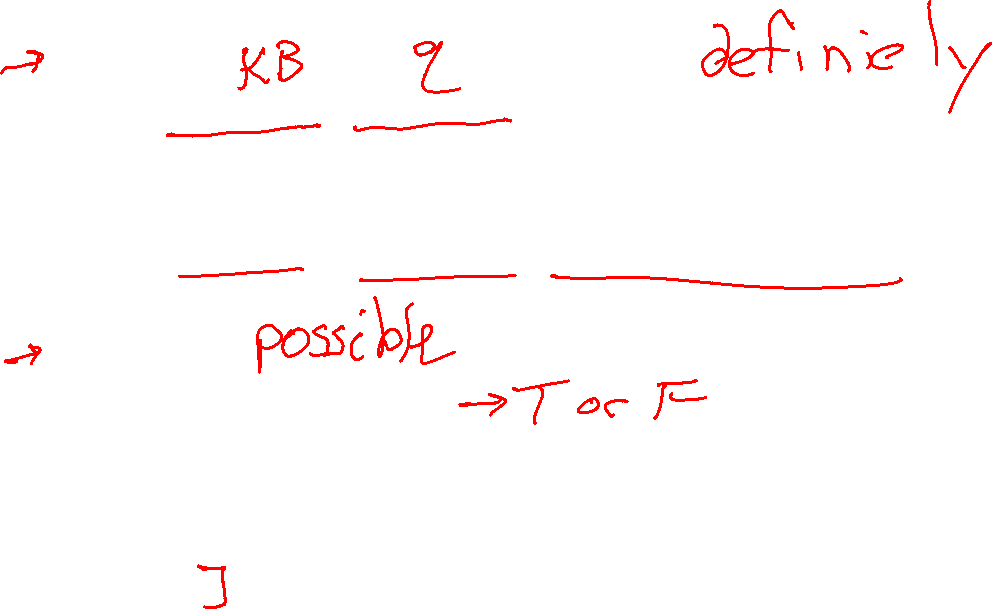 → KB q definiely
→ possible
→ T or F
]